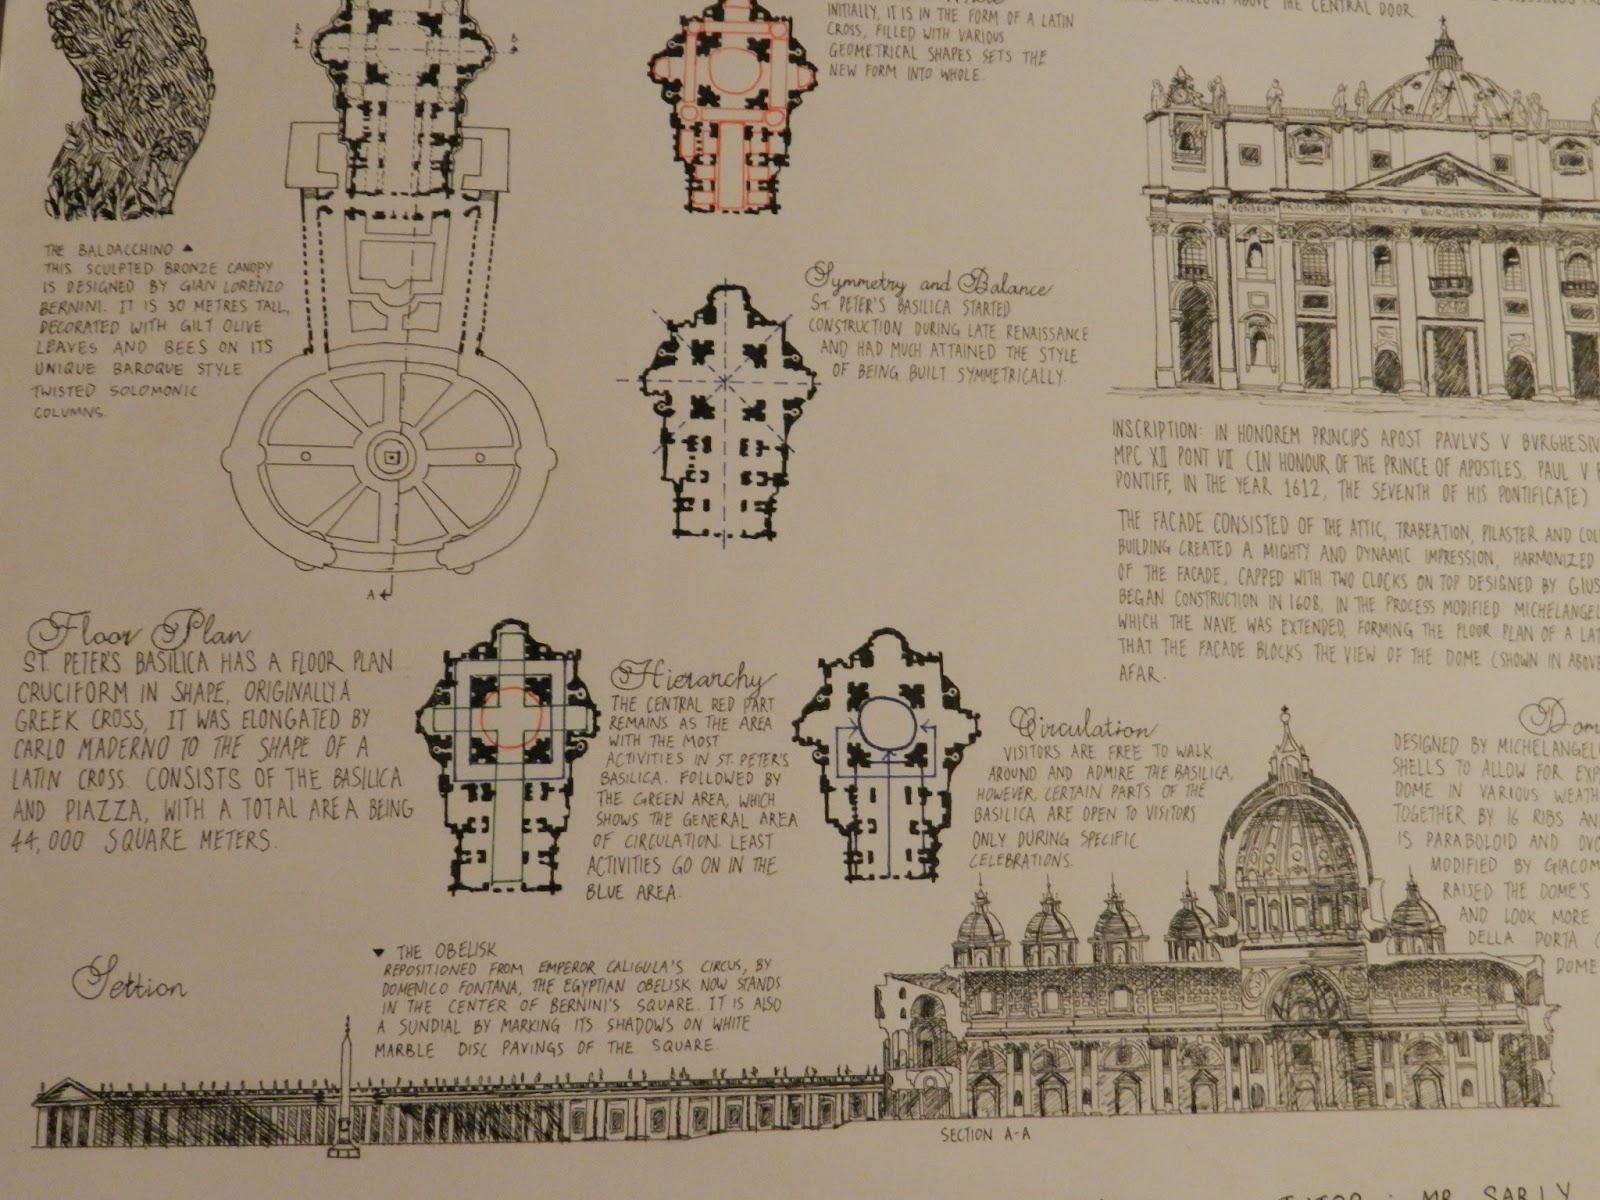 INITIALLY, IT IS IN THE FORM OF A LATIN
CROSS, FILLED WITH VARIOUS
GEOMETRICAL SHAPES SETS THE
NEW FORM INTO WHOLE.
BALCONY ABOVE THE CENTRAL DOOR.
B
B
THE BALDACCHINO
THIS SCULPTED BRONZE CANOPY
IS DESIGNED BY GIAN LORENZO
BERNINI. IT IS 30 METRES TALL,
DECORATED WITH GILT OLIVE
LEAVES AND BEES ON ITS
UNIQUE BAROQUE STYLE
TWISTED SOLOMONIC
COLUMNS.
A
Symmetry and Balance
ST. PETER'S BASILICA STARTED
CONSTRUCTION DURING LATE RENAISSANCE
AND HAD MUCH ATTAINED THE STYLE
OF BEING BUILT SYMMETRICALLY.
IN HONOREM PRINCIPIS APOST PAVLVS V BVRGHESIVS ROMANVS PONT MAX
INSCRIPTION: IN HONOREM PRINCIPS APOST PAVLVS V BVRGHESIV
MPC XII PONT VII (IN HONOUR OF THE PRINCE OF APOSTLES, PAUL V
PONTIFF, IN THE YEAR 1612, THE SEVENTH OF HIS PONTIFICATE)
THE FACADE CONSISTED OF THE ATTIC, TRABEATION, PILASTER AND COL
BUILDING CREATED A MIGHTY AND DYNAMIC IMPRESSION, HARMONIZED
OF THE FACADE, CAPPED WITH TWO CLOCKS ON TOP DESIGNED BY GIUS
BEGAN CONSTRUCTION IN 1608, IN THE PROCESS MODIFIED MICHELANGEL
WHICH THE NAVE WAS EXTENDED, FORMING THE FLOOR PLAN OF A LAT
THAT THE FACADE BLOCKS THE VIEW OF THE DOME (SHOWN IN ABOVE
AFAR.
Floor Plan
ST. PETER'S BASILICA HAS A FLOOR PLAN
CRUCIFORM IN SHAPE, ORIGINALLY A
GREEK CROSS, IT WAS ELONGATED BY
CARLO MADERNO TO THE SHAPE OF A
LATIN CROSS. CONSISTS OF THE BASILICA
AND PIAZZA, WITH A TOTAL AREA BEING
44,000 SQUARE METERS.
Hierarchy
THE CENTRAL RED PART
REMAINS AS THE AREA
WITH THE MOST
ACTIVITIES IN ST. PETER'S
BASILICA. FOLLOWED BY
THE GREEN AREA, WHICH
SHOWS THE GENERAL AREA
OF CIRCULATION. LEAST
ACTIVITIES GO ON IN THE
BLUE AREA.
Circulation
VISITORS ARE FREE TO WALK
AROUND AND ADMIRE THE BASILICA,
HOWEVER, CERTAIN PARTS OF THE
BASILICA ARE OPEN TO VISITORS
ONLY DURING SPECIFIC
CELEBRATIONS.
Dom
DESIGNED BY MICHELANGEL
SHELLS TO ALLOW FOR EXP
DOME IN VARIOUS WEATH
TOGETHER BY 16 RIBS AN
IS PARABOLOID AND OVO
MODIFIED BY GIACOM
RAISED THE DOME'S
AND LOOK MORE
DELLA PORTA
DOME
Section
THE OBELISK
REPOSITIONED FROM EMPEROR CALIGULA'S CIRCUS, BY
DOMENICO FONTANA, THE EGYPTIAN OBELISK NOW STANDS
IN THE CENTER OF BERNINI'S SQUARE. IT IS ALSO
A SUNDIAL BY MARKING ITS SHADOWS ON WHITE
MARBLE DISC PAVINGS OF THE SQUARE.
SECTION A-A
TUTOR : MR. SABLY